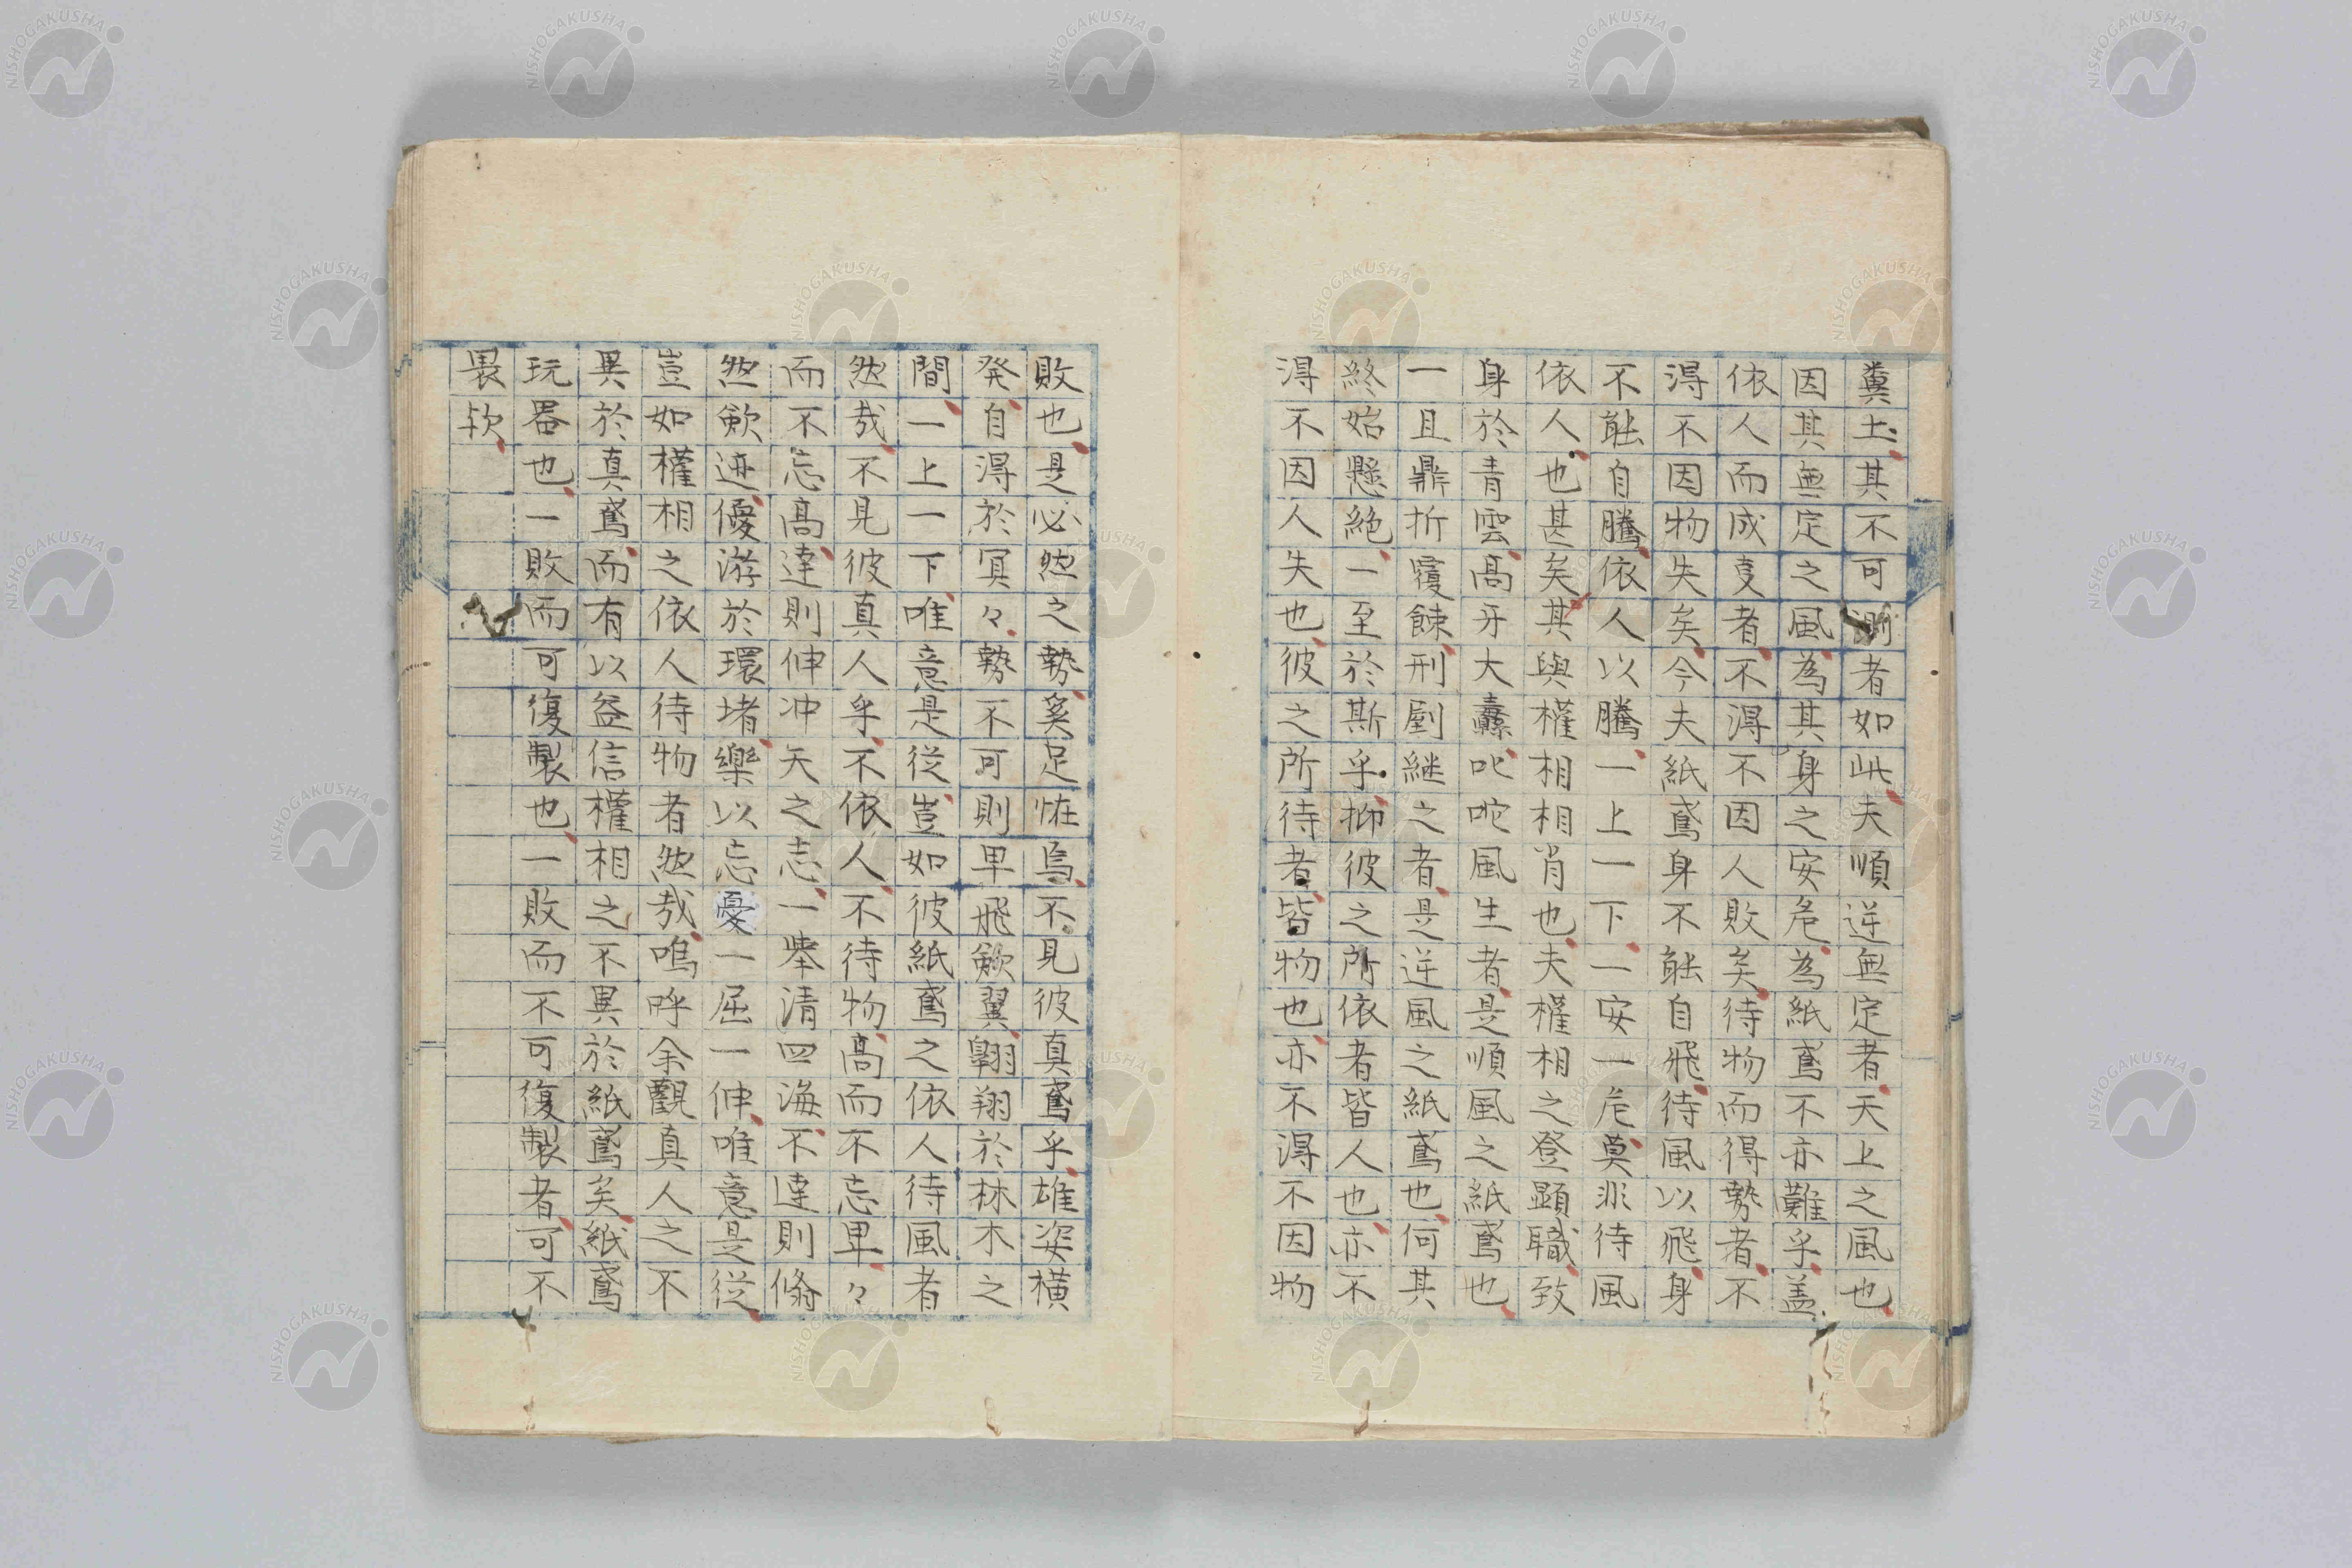 糞土其不可測者如此夫順逆無定者天上之風也
因其無定之風為其身之安危為紙鳶不亦難乎盖
依人而成支者不得不因人敗矣待物而得勢者不
得不因物失矣今夫紙鳶身不能自飛待風以飛身
不能自騰依人以騰一上一下一安一危莫非待風
依人也甚矣其與權相相肖也夫權相之登顕職致
身於青雲高牙大纛叱咤風生者是順風之紙鳶也
一旦鼎折覆餗刑劓継之者是逆風之紙鳶也何其
終始懸絶一至於斯乎抑彼之所依者皆人也亦不
得不因人失也彼之所待者皆物也亦不得不因物
敗也是必然之勢奚足怪烏不見彼真鳶乎雄姿橫
発自得於冥々勢不可則卑飛斂翼翺翔於林木之
間一上一下唯意是從豈如彼紙鳶之依人待風者
然哉不見彼真人乎不依人不待物高而不忘卑々
而不忘高達則伸冲天之志一挙清四海不達則翛
然斂迹優游於環堵樂以忘憂一屈一伸唯意是從
豈如權相之依人待物者然哉嗚呼余觀真人之不
異於真鳶而有以益信權相之不異於紙鳶矣紙鳶
玩器也一敗而可復製也一敗而不可復製者可不
畏欤
NISHOGAKUSHA